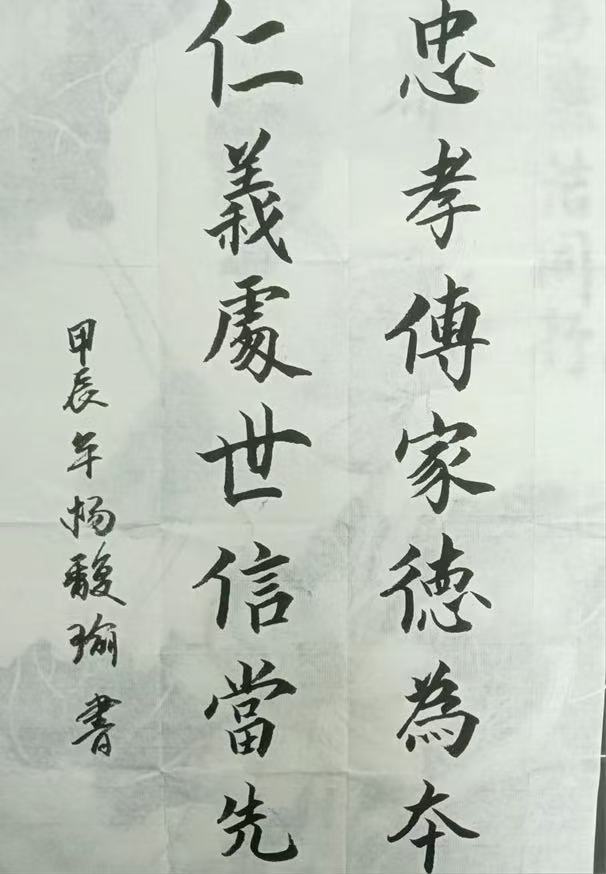 忠孝傳家德為本
仁義處世信當先
甲辰年杨馥瑜書